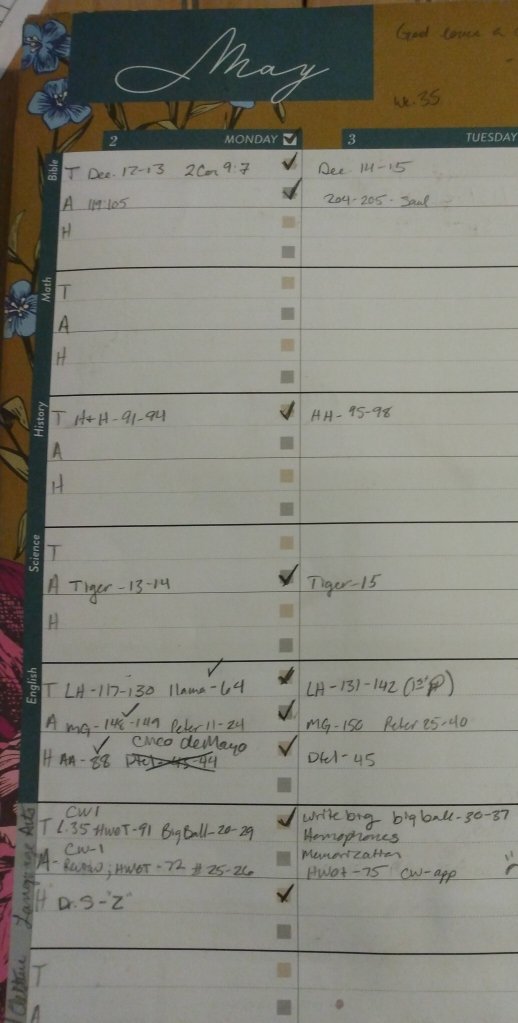 May
God loves a
wk. 35
2 MONDAY 3 TUESDAY
Bible
T Dec. 12-13 2 Cor 9:7 Dec. 14-15
A 119:105 204-205 - Saul
H
Math
T
A
H
History
T H+H-91-94 HH-95-98
A
H
Science
T
A Tiger-13-14 Tiger-15
H
English
T LH-117-130 llama-64 LH-131-142
A MG-148-149 Peter 11-24 MG-150 Peter 25-40
Cinco de Mayo
H AA-88 -45
Language Arts
CW1 write big big ball-30-37
T L.35 HWOT-91 Big Ball-20-29 Homophones
CW-1 Memorization
A- Review; HWOT-72 #25-26 HWOT-75 CW-app
H Dr. S-"Z"
T
A